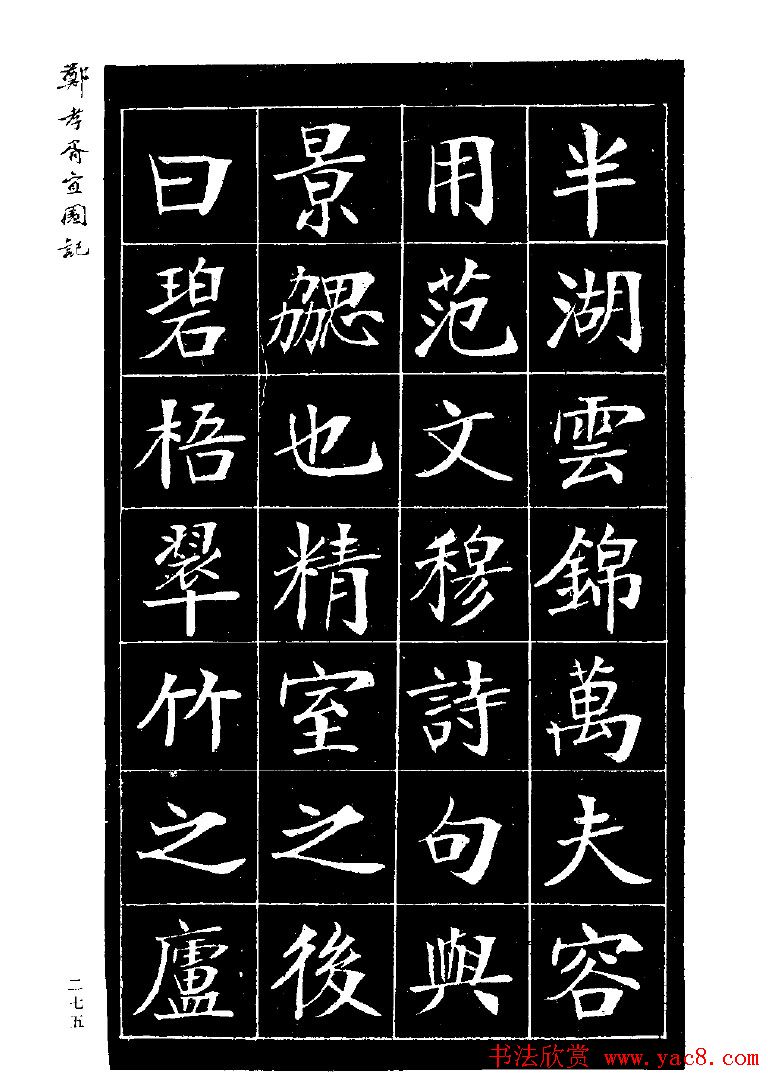 鄭孝胥宜園記
半湖雲錦萬夫容
用范文穆詩句與
景勰也精室之後
曰碧梧翠竹之廬
二七五
书法欣赏 www.yac8.com